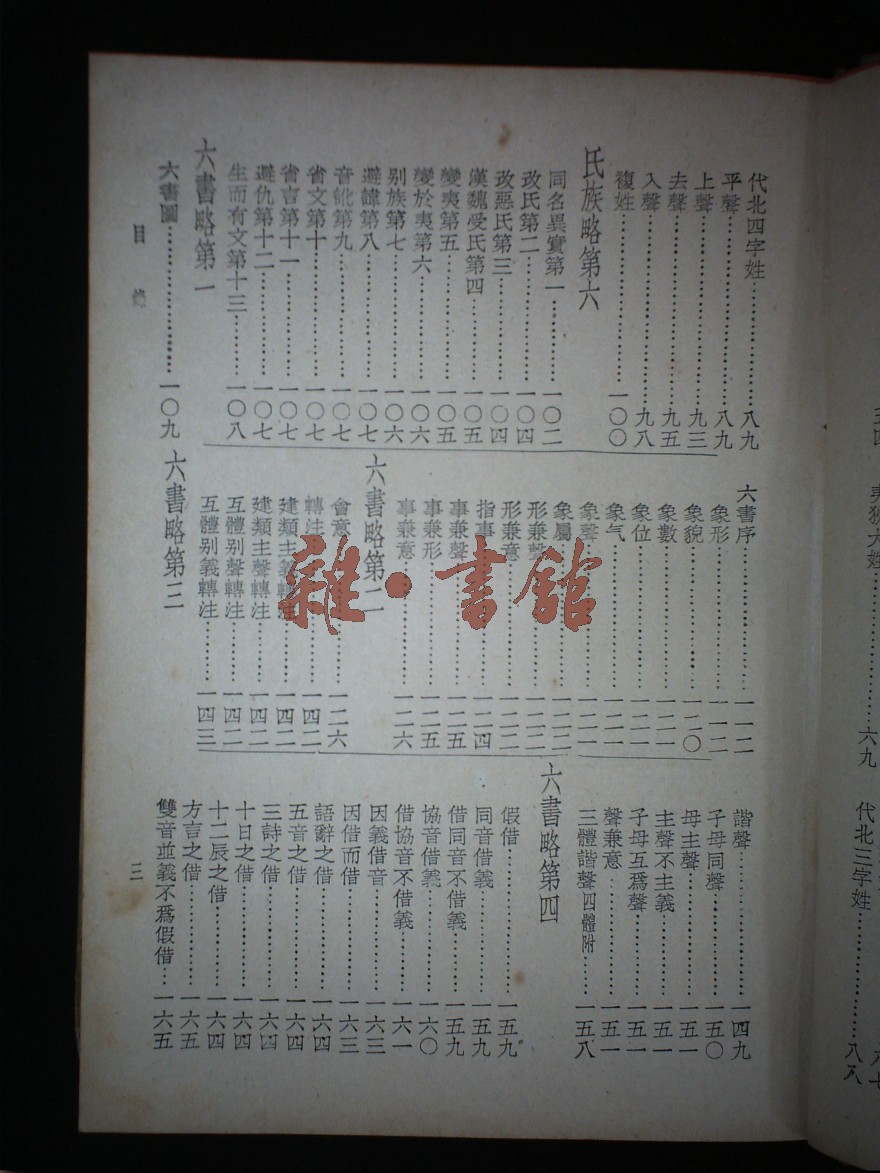 代北四字姓……八九
平聲……八九
上聲……九三
去聲……九五
入聲……九八
複姓……一〇〇
氏族略第六
同名異實第一……一〇二
改氏第二……一〇四
改惡氏第三……一〇四
漢魏受氏第四……一〇五
變夷第五……一〇五
變於夷第六……一〇六
别族第七……一〇六
避諱第八……一〇七
音訛第九……一〇七
省文第十……一〇七
省言第十一……一〇七
避仇第十二……一〇七
生而有文第十三……一〇八
六書略第一
六書圖……一〇九
六書序……一一二
象形……一一二
象貌……一二〇
象數……一二一
象位……一二一
象气……一二一
象聲……一二一
象屬……一二二
形兼聲……一二二
形兼意……一二二
指事……一二四
事兼聲……一二五
事兼形……一二五
事兼意……一二六
六書略第二
會意……一二六
轉注……一四二
建類主義轉注……一四二
建類主聲轉注……一四二
互體别聲轉注……一四二
互體别義轉注……一四三
六書略第三
諧聲……一四九
子母同聲……一五〇
母主聲……一五一
主聲不主義……一五一
子母互爲聲……一五一
聲兼意……一五一
三體諧聲四體附……一五八
六書略第四
假借……一五九
同音借義……一五九
借同音不借義……一五九
協音借義……一六〇
借協音不借義……一六一
因義借音……一六三
因借而借……一六三
語辭之借……一六四
五音之借……一六四
三詩之借……一六四
十日之借……一六四
十二辰之借……一六四
方言之借……一六五
雙音並義不爲假借……一六五
目錄
三
雜·書館
夷狄大姓……六九
代北三字姓……八八